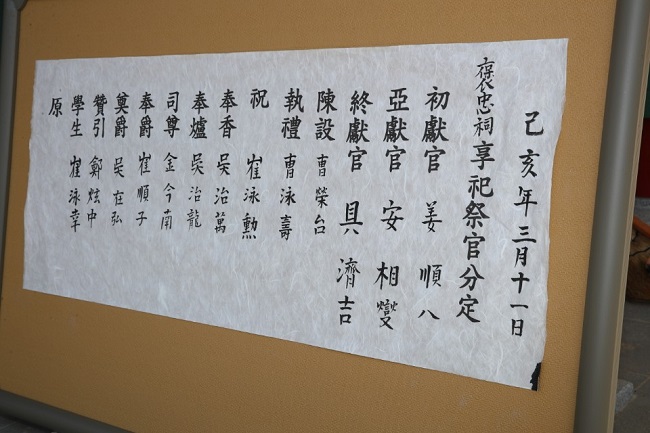 己亥年三月十一日
褒忠祠享祀祭官分定
初獻官 姜順八
亞獻官 安相燮
終獻官 具濟吉
陳設 曹榮台
執禮 曹泳壽
祝 崔泳勳
奉香 吳治萬
奉爐 吳治龍
司尊 金今南
奉爵 崔順子
奠爵 吳在弘
贊引 鄭炫中
學生 崔泳幸
原